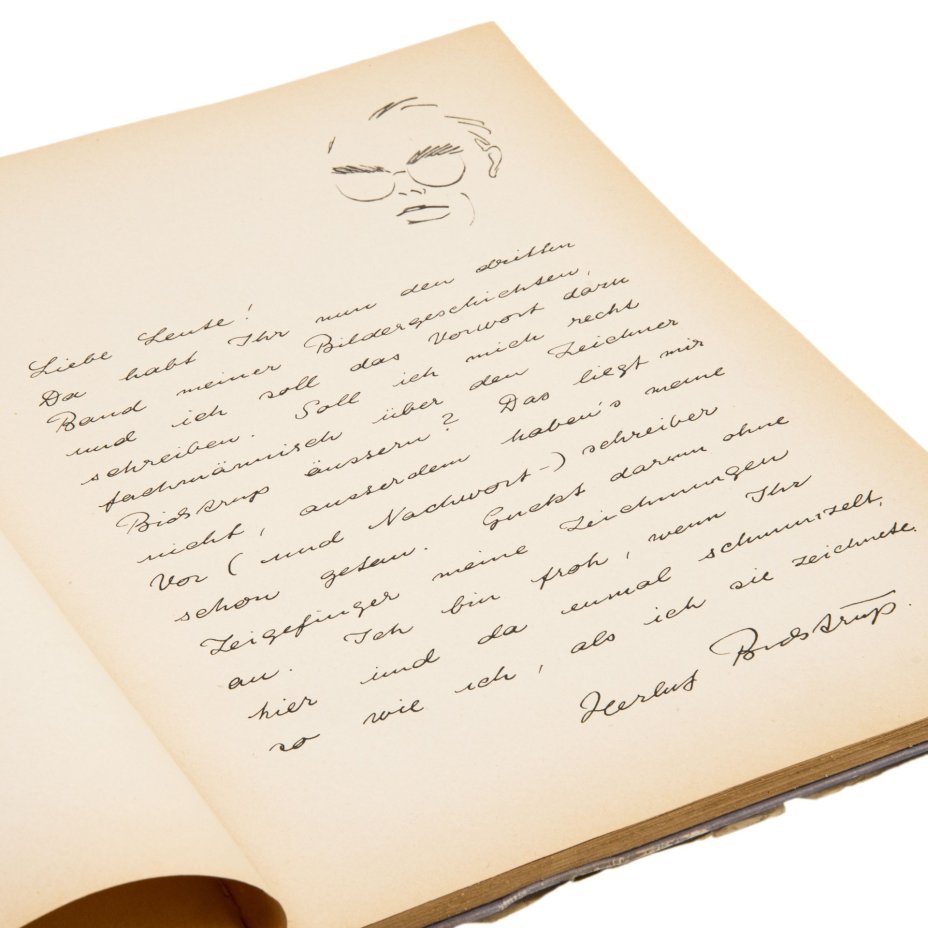 Liebe Leute!
Da habt Ihr nun den dritten
Band meiner Bildergeschichten,
und ich soll das Vorwort dazu
schreiben. Soll ich mich recht
fachmännisch über den Zeichner
Bidstrup äussern? Das liegt mir
nicht, ausserdem haben's meine
Vor (und Nachwort-) schreiber
schon getan. Guckt darum ohne
Zeigefinger meine Zeichnungen
an. Ich bin froh, wenn Ihr
hier und da einmal schmunzelt,
so wie ich, als ich sie zeichnete.
Herluf Bidstrup.